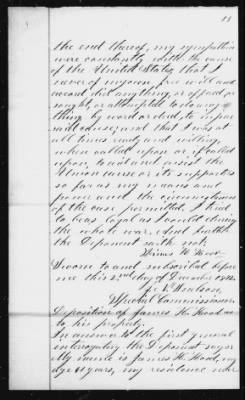 15
the end thereof, my sympathies
were constantly with the cause
of the United States, that I
never of my own free will and
accord did anything, or offered or
sought, or attempted to do any-
thing by word or deed, to injure
said cause, and that I was at
all times ready and willing,
when called upon or if called
upon, to aid and assist the
Union cause or its supporters
so far as my means and
power and the circumstances
of the case permitted. I tried
to be as loyal as I could during
the whole war. And further
the Deponent saith not.
Sworn to and subscribed before
me this 22nd day of December
Special Commissioner
Deposition of James H. Hood as
to his property.
In answer to the first general
interrogatory the Deponent says
My name is James H. Hood, my
age 41 years, my residence